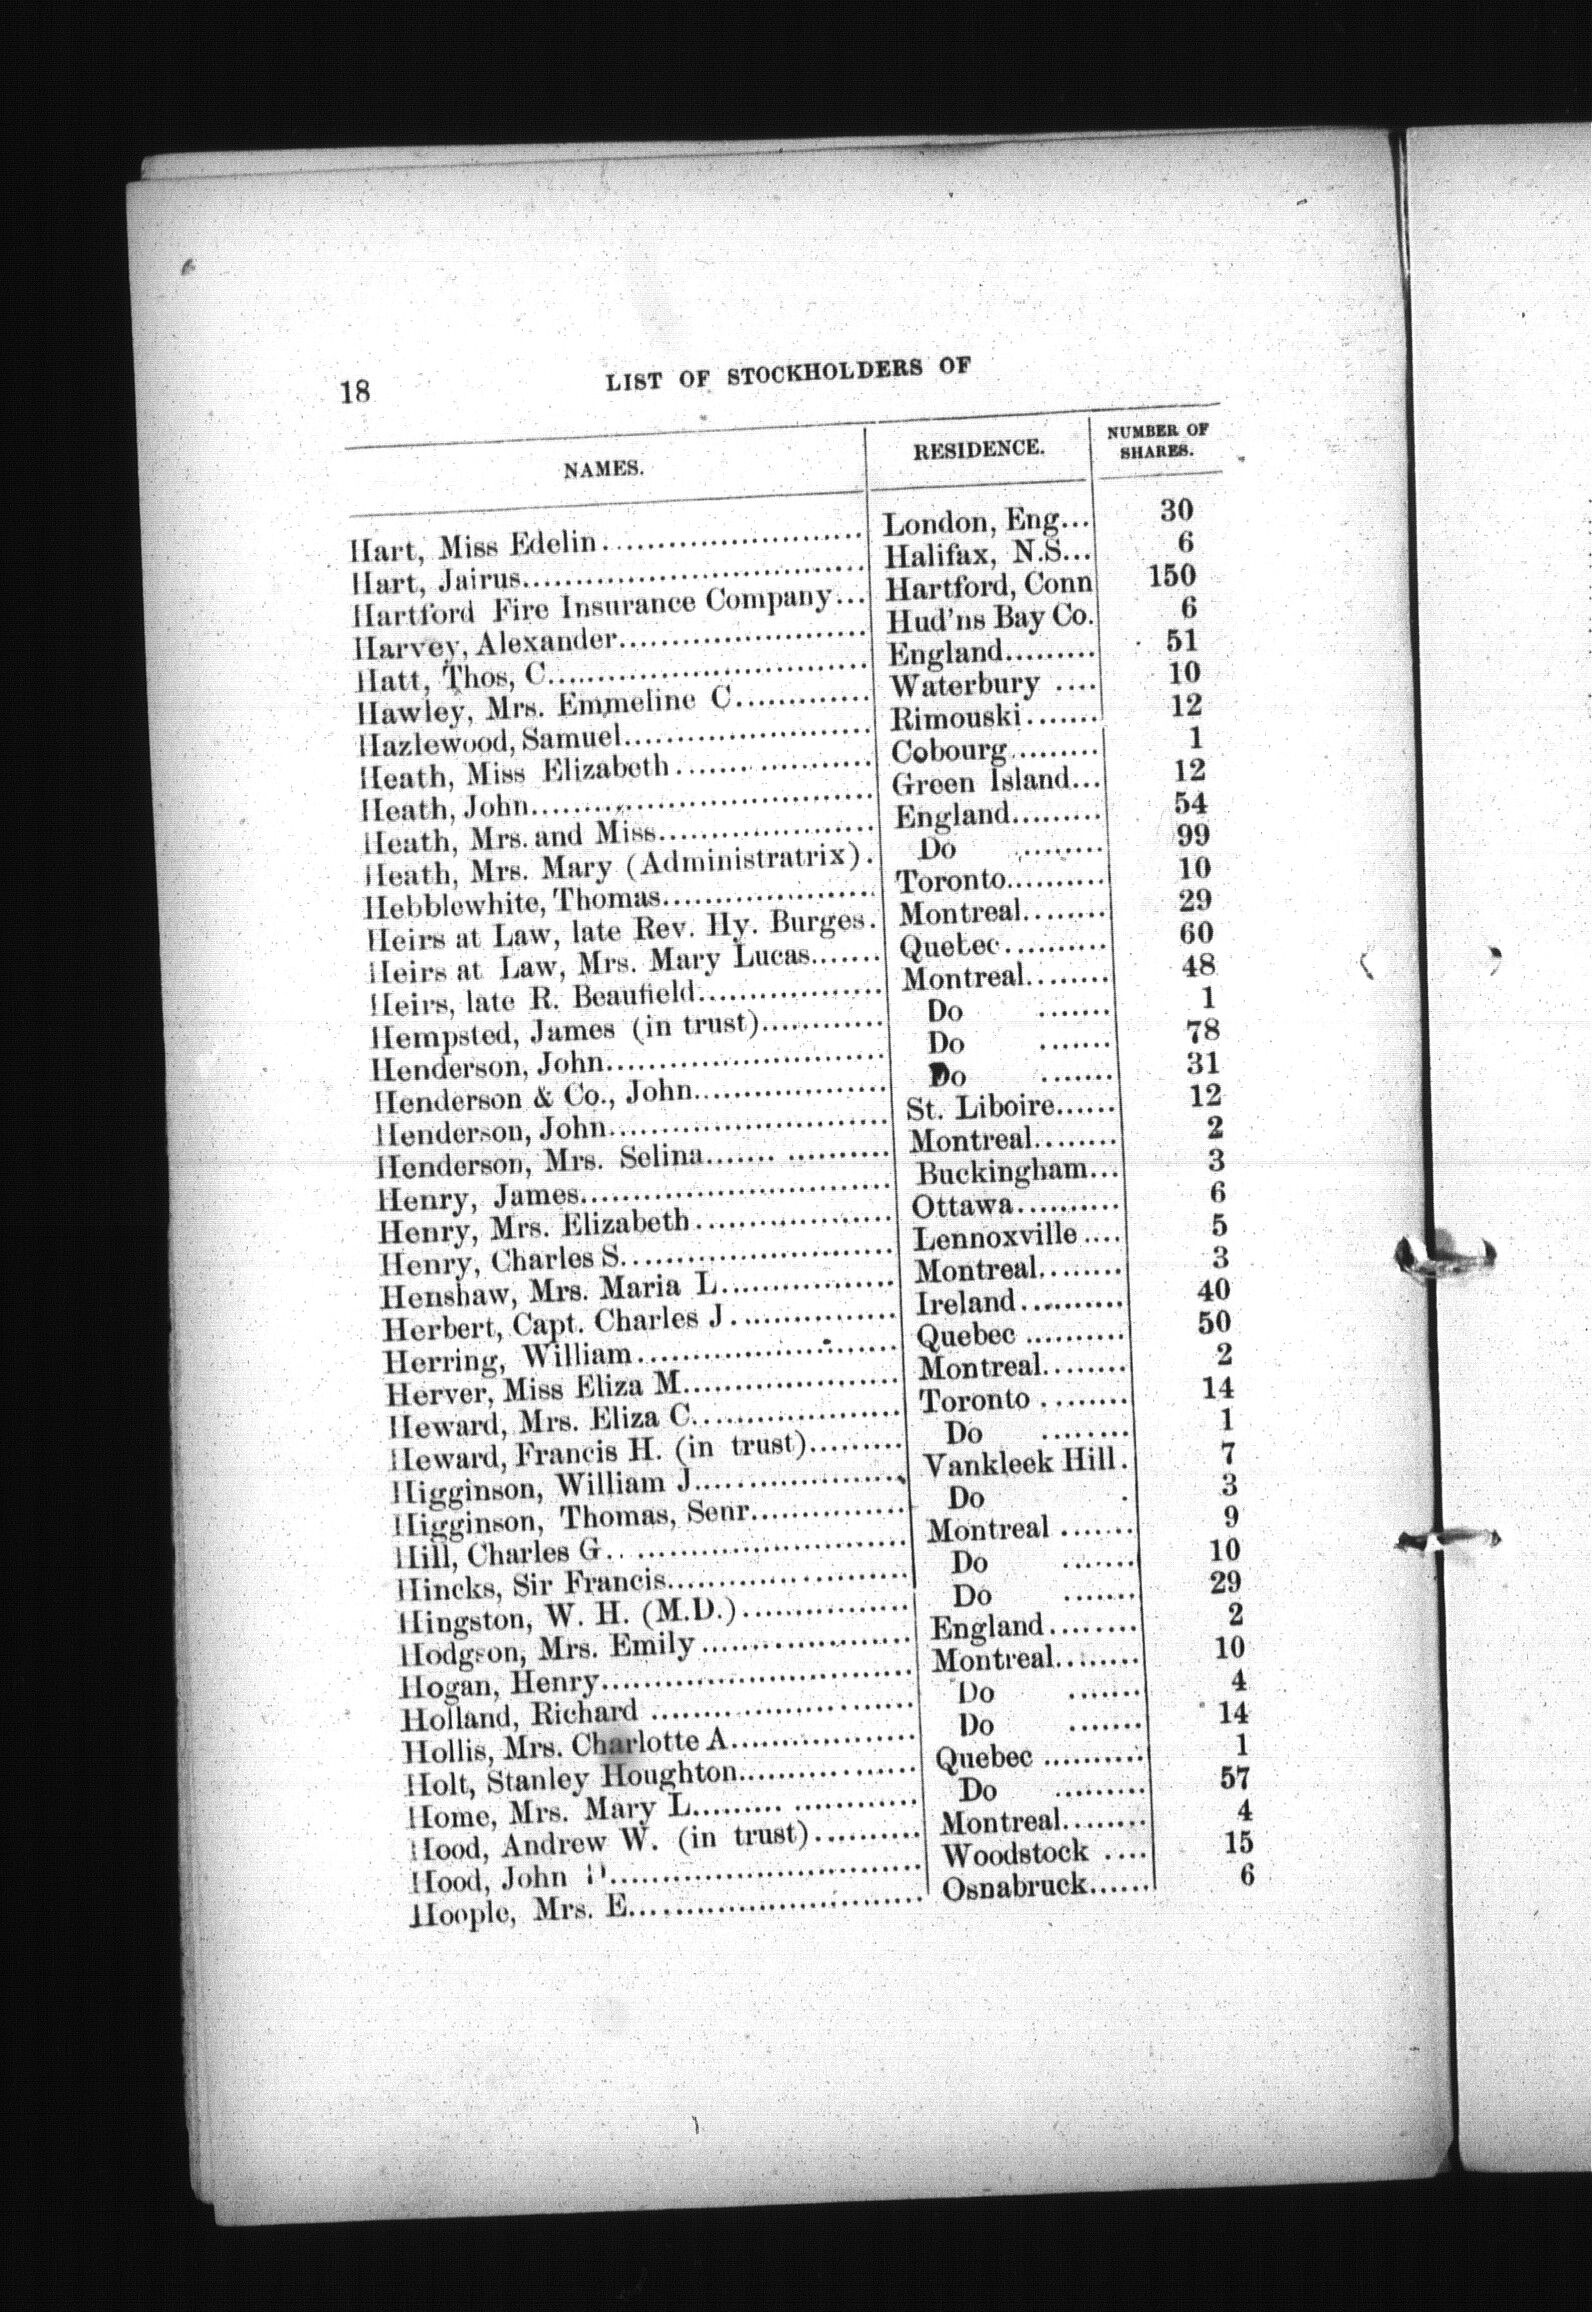 18 LIST OF STOCKHOLDERS OF
NAMES. RESIDENCE. NUMBER OF SHARES.
Hart, Miss Edelin........................ London, Eng... 30
Hart, Jairus................................ Halifax, N.S... 6
Hartford Fire Insurance Company... Hartford, Conn 150
Harvey, Alexander........................ Hud'ns Bay Co. 6
Hatt, Thos, C.............................. England......... 51
Hawley, Mrs. Emmeline C............. Waterbury .... 10
Hazlewood, Samuel........................ Rimouski....... 12
Heath, Miss Elizabeth................... Cobourg......... 1
Heath, John................................ Green Island... 12
Heath, Mrs. and Miss..................... England......... 54
Heath, Mrs. Mary (Administratrix). Do ........ 99
Hebblewhite, Thomas..................... Toronto.......... 10
Heirs at Law, late Rev. Hy. Burges. Montreal........ 29
Heirs at Law, Mrs. Mary Lucas....... Quebec.......... 60
Heirs, late R. Beaufield.................. Montreal........ 48
Hempsted, James (in trust)............ Do ....... 1
Henderson, John........................... Do ....... 78
Henderson & Co., John.................. Do ....... 31
Henderson, John........................... St. Liboire...... 12
Henderson, Mrs. Selina....... .......... Montreal........ 2
Henry, James.............................. Buckingham... 3
Henry, Mrs. Elizabeth................... Ottawa.......... 6
Henry, Charles S........................... Lennoxville.... 5
Henshaw, Mrs. Maria L................. Montreal........ 3
Herbert, Capt. Charles J................ Ireland.......... 40
Herring, William.......................... Quebec .......... 50
Herver, Miss Eliza M..................... Montreal........ 2
Heward, Mrs. Eliza C.................... Toronto ........ 14
Heward, Francis H. (in trust)......... Do ........ 1
Higginson, William J.................... Vankleek Hill. 7
Higginson, Thomas, Senr............... Do . 3
Hill, Charles G.. ......................... Montreal ....... 9
Hincks, Sir Francis....................... Do ....... 10
Hingston, W. H. (M.D.)................ Do ....... 29
Hodgson, Mrs. Emily.................... England........ 2
Hogan, Henry.............................. Montreal........ 10
Holland, Richard ......................... Do ....... 4
Hollis, Mrs. Charlotte A................. Do ....... 14
Holt, Stanley Houghton................. Quebec .......... 1
Home, Mrs. Mary L......... ............ Do ......... 57
Hood, Andrew W. (in trust).......... Montreal........ 4
Hood, John .............................. Woodstock .... 15
Hoople, Mrs. E............................. Osnabruck...... 6